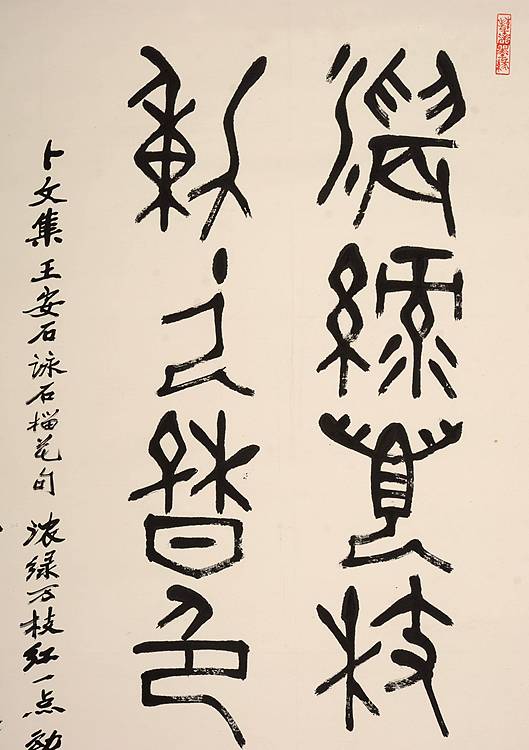 濃綠萬枝
動人春色
卜文集王安石詠石榴花句 浓绿万枝红一点